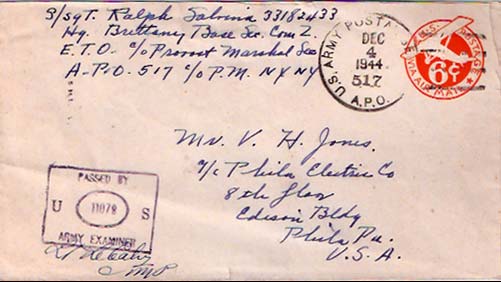 S/Sgt. Ralph Sabina 33182433
Hq. Brittany Base Sec. Com Z.
E.T.O. c/o Provost Marshal Sec
A.P.O. 517 c/o P.M. NY NY
U.S. ARMY POSTAL
DEC
4
1944
517
A.P.O.
U.S. POSTAGE
6¢
VIA AIR MAIL
Mr. V. H. Jones.
c/o Phila Electric Co
8th floor
Edison Bldg
Phila Pa.
U.S.A.
PASSED BY
U 11078 S
ARMY EXAMINER